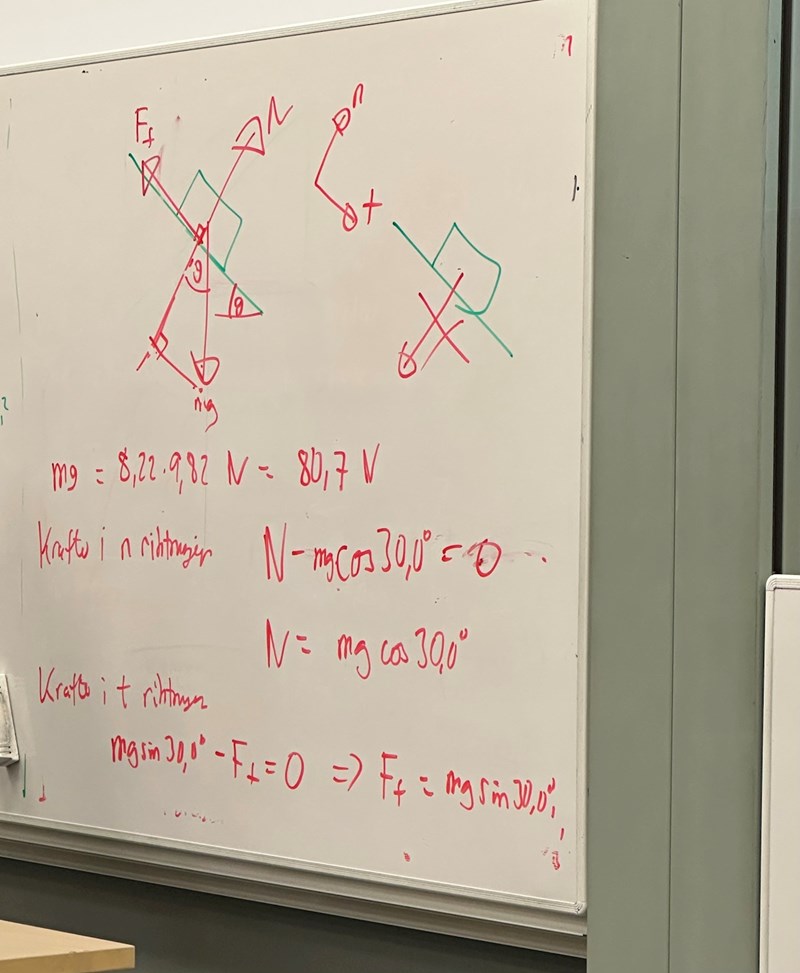 F_f
N
n
t
θ
θ
mg
mg = 8,22·9,82 N = 80,7 N
Krafter i n riktningen N - mg cos 30,0° = 0
N = mg cos 30,0°
Krafter i t riktningen
mg sin 30,0° - F_f = 0 ⇒ F_f = mg sin 30,0°